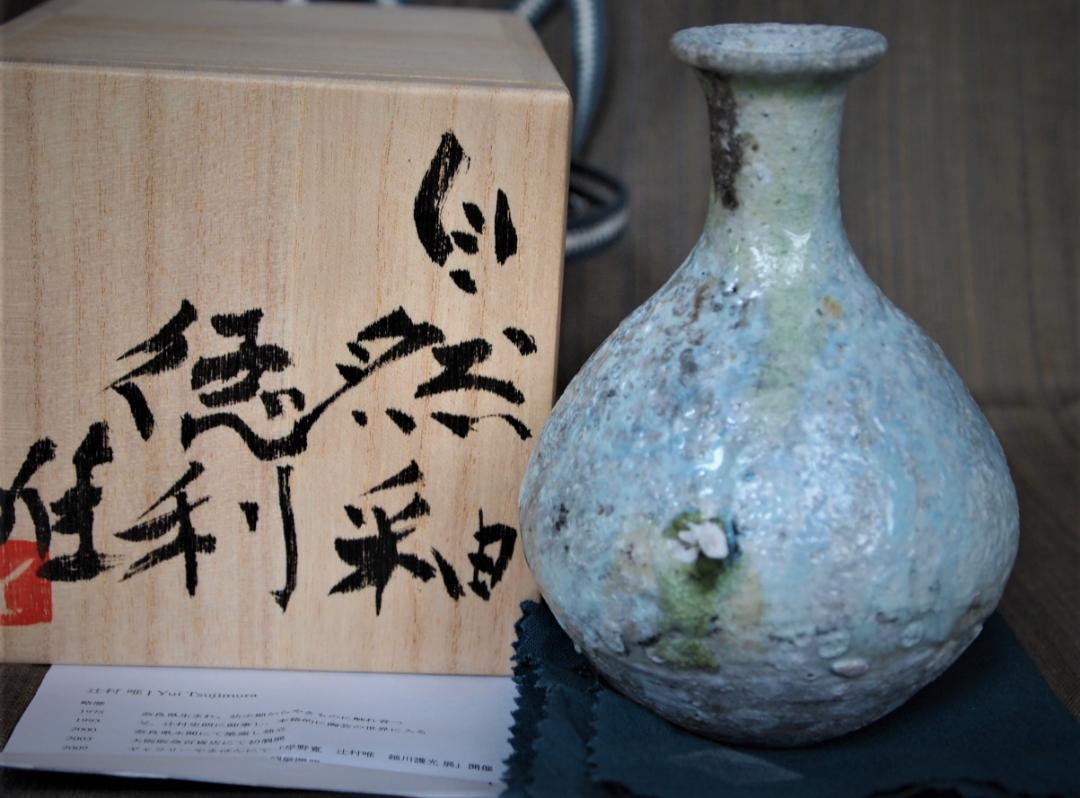 自然釉
徳利
唯
辻村 唯 | Yui Tsujimura
略歴
1975 奈良県生まれ。幼少期からやきものに触れ育つ
1993 父、辻村史朗に師事し、本格的に陶芸の世界に入る
2000 奈良県水間にて築窯し独立
2003 大阪阪急百貨店にて初個展
2009 ギャラリーやまほんにて「岸野寛 辻村唯 細川護光 展」開催